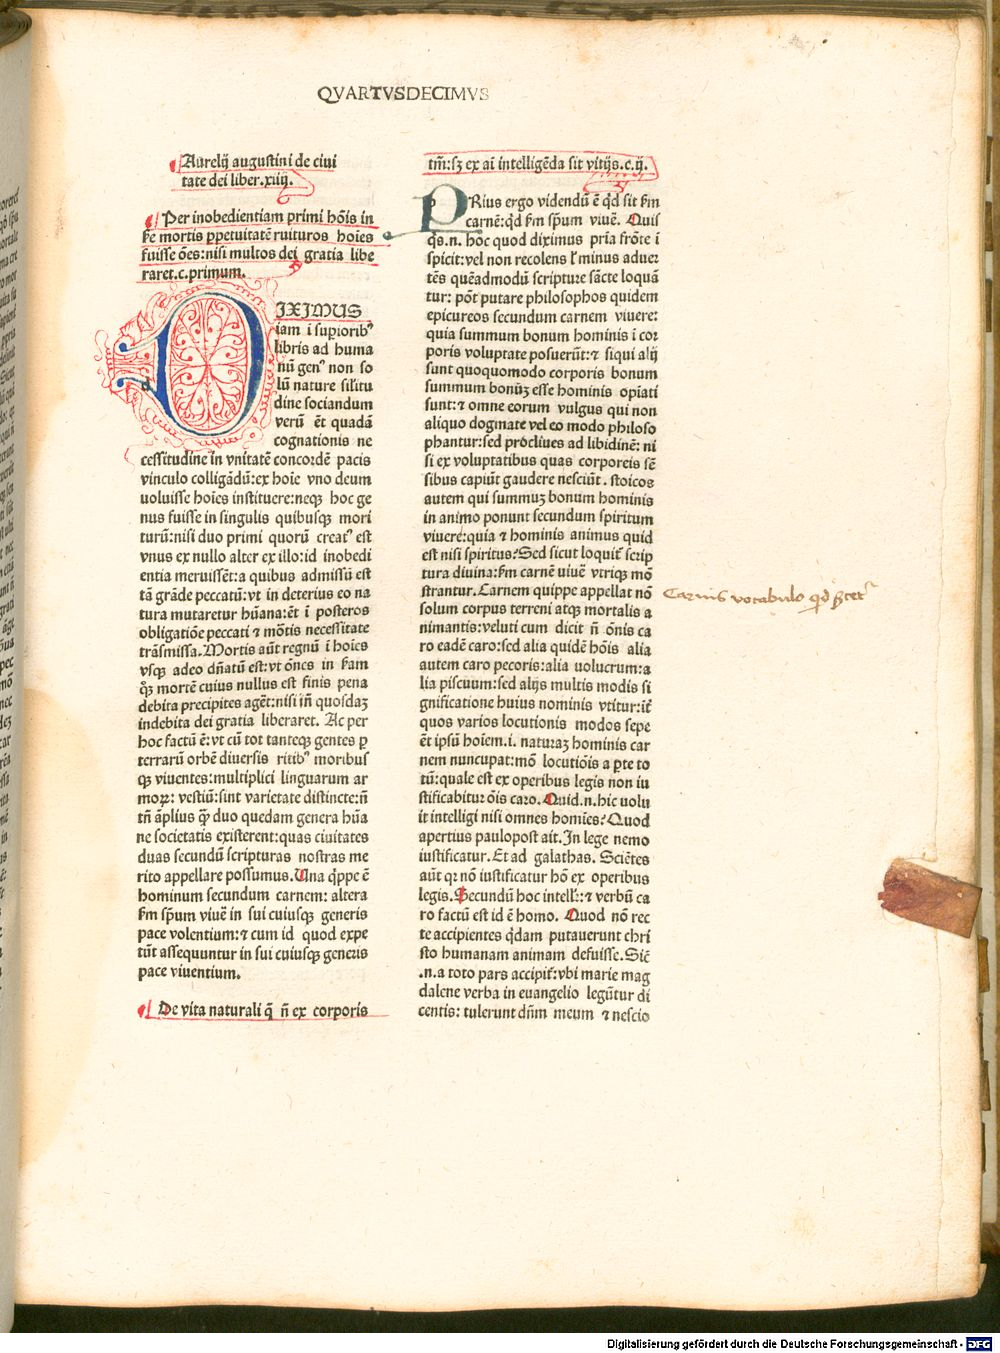 QVARTVSDECIMVS
Aurelij augustini de ciui
tate dei liber.xiiij.
Per inobedientiam primi hoı̄s in
ꝑpe mortis ꝑpetuitatē ruituros hoı̄es
fuisse oēs:nisi multos dei gratia libe
raret.c.primum.
DIXIMUS
iam ī suꝑiorib⁹
libris ad huma
nū gen⁹ non so
lū nature sil̄itu
dine sociandum
verū ēt quadā
cognationis ne
cessitudine in vnitatē concordē pacis
vinculo colligādū:ex hoı̄e vno deum
uoluisse hoı̄es instituere:neqꝫ hoc ge
nus fuisse in singulis quibusqꝫ mori
turū:nisi duo primi quorū creat⁹ est
vnus ex nullo alter ex illo:id inobedi
entia meruissēt:a quibus admissū est
tā grāde peccatū:vt in deterius eo na
tura mutaretur hūana:ēt ī posteros
obligatiōe peccati ⁊ mōtis necessitate
trāsmissa.Mortis aūt regnū ī hoı̄es
vsqꝫ adeo dn̄atū est:vt ōnes in scd̄am
qͦꝫ mortē cuius nullus est finis pena
debita precipites agēt:nisi in̄ quosdaꝫ
indebita dei gratia liberaret. Ac per
hoc factū ē:vt cū tot tanteqꝫ gentes ꝑ
terrarū orbē diuersis ritib⁹ moribus
qꝫ viuentes:multiplici linguarum ar
moꝝ: vestiū:sint varietate distincte:n̄
tn̄ āplius qꝫ̄ duo quedam genera hūa
ne societatis existerent:quas ciuitates
duas secundū scripturas nostras me
rito appellare possumus.Una q̇ppe ē
hominum secundum carnem: altera
scd̄m sp̄um viuē in sui cuiusqꝫ generis
pace volentium:⁊ cum id quod expe
tūt assequuntur in sui cuiusqꝫ generis
pace viuentium.
De vita naturali q̄ n̄ ex corporis
tm̄:sꝫ ex ai̅ intelligēda sit vitijs.c.ij.
PRius ergo videndū ē qd̄ sit scd̄m
carnē:qd̄ scd̄m sp̄um viuē. Quis
qͥs.n. hoc quod diximus pria frōte ī
spicit:vel non recolens ł minus aduer
tēs quēadmodū scripture sācte loquā
tur: pōt putare philosophos quidem
epicureos secundum carnem viuere:
quia summum bonum hominis ī cor
poris voluptate posuerūt:⁊ siqui alij
sunt quoquomodo corporis bonum
summum bonūꝫ esse hominis opiati
sunt:⁊ omne eorum vulgus qui non
aliquo dogmate vel eo modo philoso
phantur:sed procliues ad libidinē: ni
si ex voluptatibus quas corporeis sē
sibus capiūt gaudere nesciūt. stoicos
autem qui summuꝫ bonum hominis
in animo ponunt secundum spiritum
viuere:quia ⁊ hominis animus quid
est nisi spiritus?Sed sicut loquit̄ scrip
tura diuina:scd̄m carnē viuē vtriqꝫ mō
strantur.Carnem quippe appellat nō
solum corpus terreni atqꝫ mortalis a
nimantis:veluti cum dicit n̄ ōnis ca
ro eadē caro:sed alia quidē hōis alia
autem caro pecoris:alia volucrum:a
lia piscuum:sed alijs multis modis si
gnificatione huius nominis vtitur:it̄
quos varios locutionis modos sepe
ēt ipsū hoı̄em.i. naturaꝫ hominis car
nem nuncupat:mō locutiōis a ꝑte to
tū:quale est ex operibus legis non iu
stificabitur ōis caro.Quid.n.hic uolu
it intelligi nisi omnes homı̄es?Quod
apertius paulopost ait.In lege nemo
iustificatur.Et ad galathas. Sciētes
aūt qꝛ nō iustificatur hō ex operibus
legis.Secundū hoc intell̄r:⁊ verbū ca
ro factū est id ē homo. Quod nō rec
te accipientes q̇dam putauerunt chri
sto humanam animam defuisse.Sic̄
.n.a toto pars accipit̄:vbi marie mag
dalene verba in euangelio legūtur di
centis: tulerunt dn̄m meum ⁊ nescio
Carnis vocabulo
Digitalisierung gefördert durch die Deutsche Forschungsgemeinschaft - DFG